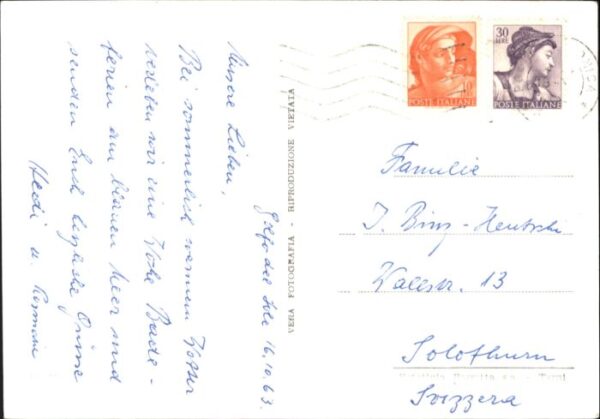 Golfo del Sole 16.10.63.
Unsere Lieben,
Bei sommerlich warmem Wetter
verleben wir eine Woche Bade-
ferien am blauen Meer und
senden Euch herzliche Grüsse
Hedi u.
VERA FOTOGRAFIA - RIPRODUZIONE VIETATA
30
LIRE
POSTE ITALIANE
10
POSTE ITALIANE
Familie
J. Binz-Hentschi
Wallstr. 13
Solothurn
Svizzera